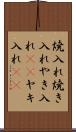 焼入れ焼き
入れやき入
れヤキ
入れ